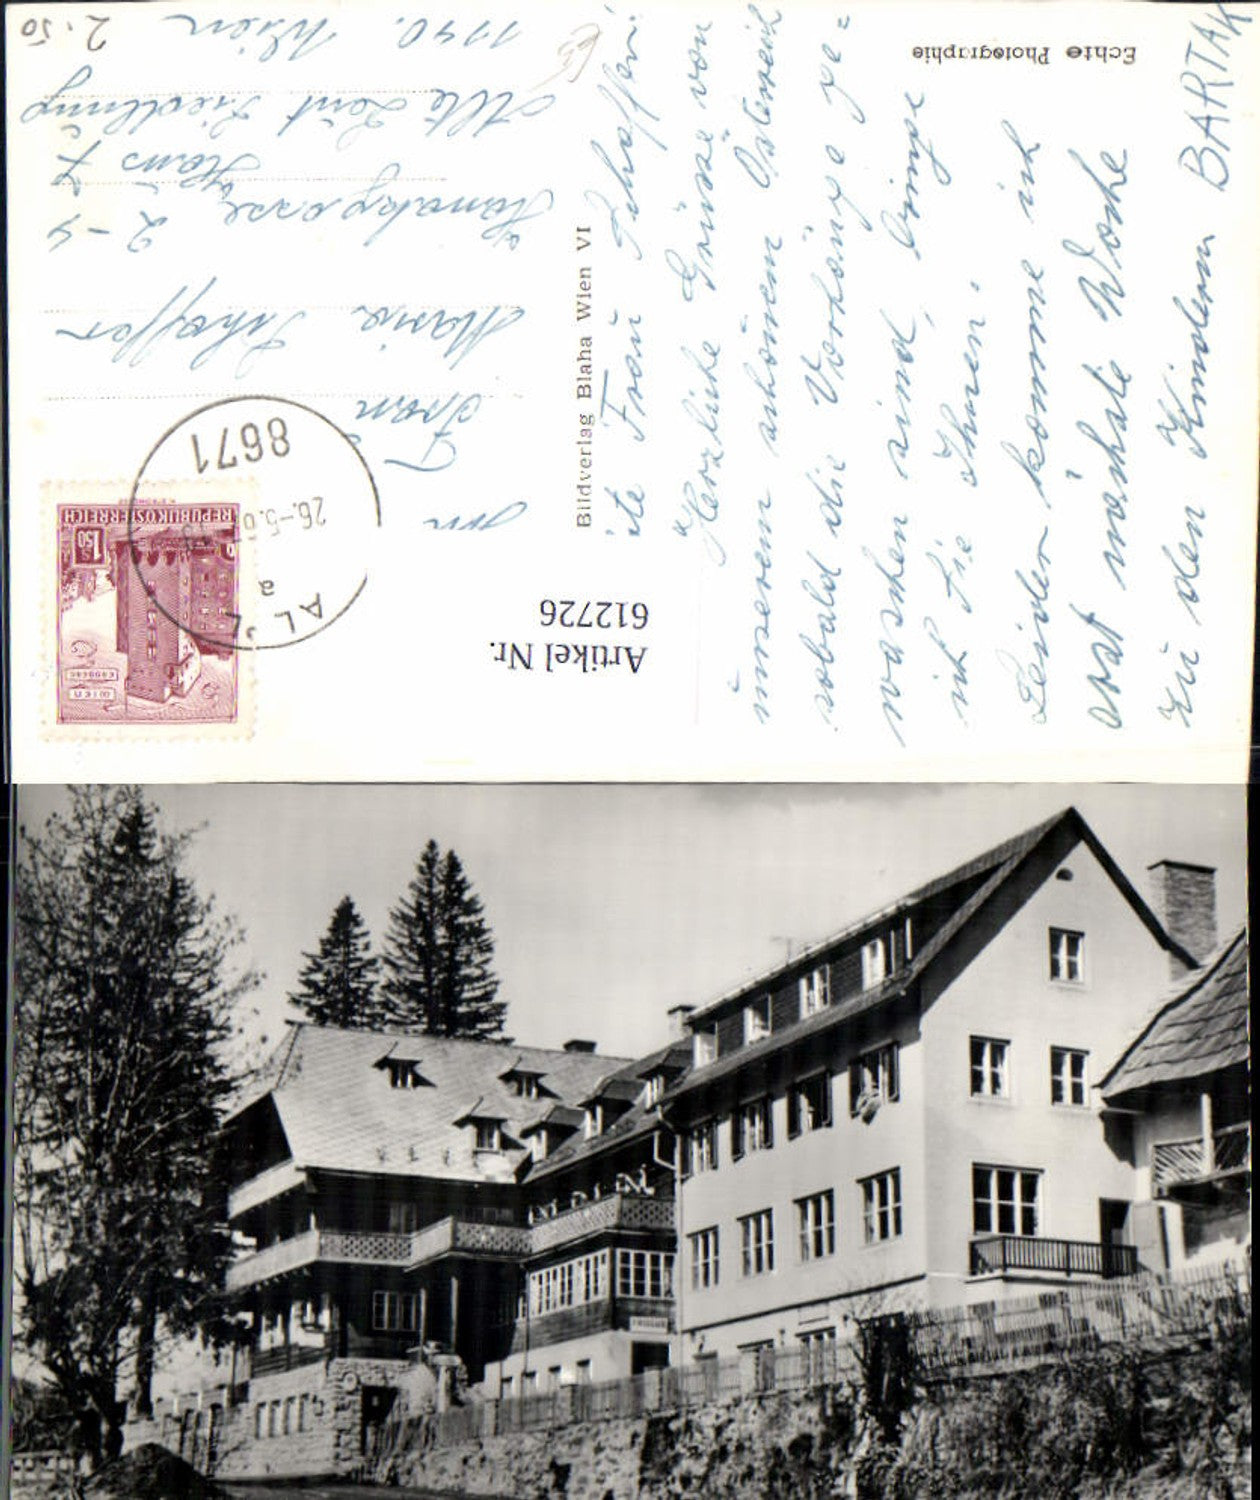 Echte Photographie
Bildverlag Blaha Wien VI
Artikel Nr.
612726
8671
26.-5.6
AL
a
REPUBLIK ÖSTERREICH
1.50
WIEN
An
Frau
Maria Schaffer
2-4
Haus 7
Alte
1140. Wien
2.50
Frau Schaffer!
Herzliche Grüsse von
unserem schönem Österreich
sobald die Vorhänge ge=
waschen sind, bringe
ich Sie Ihnen.
Leider komme ich
erst nächste Woche
zu den Kindern BARTAK